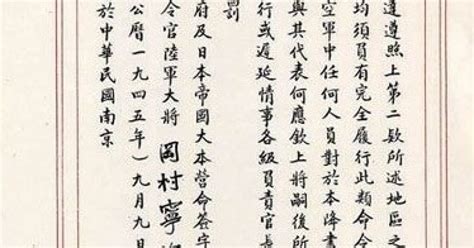 達遵照上第二款所述地區之
均須負有完全履行此類命令
空軍中任何人員對於本降書
與其代表何應欽上將嗣後所
行或遲延情事各級負責官長
罰
府及日本帝國大本營命簽字
令官陸軍大將 岡村寧
公曆一九四五年)九月九日
於中華民國南京